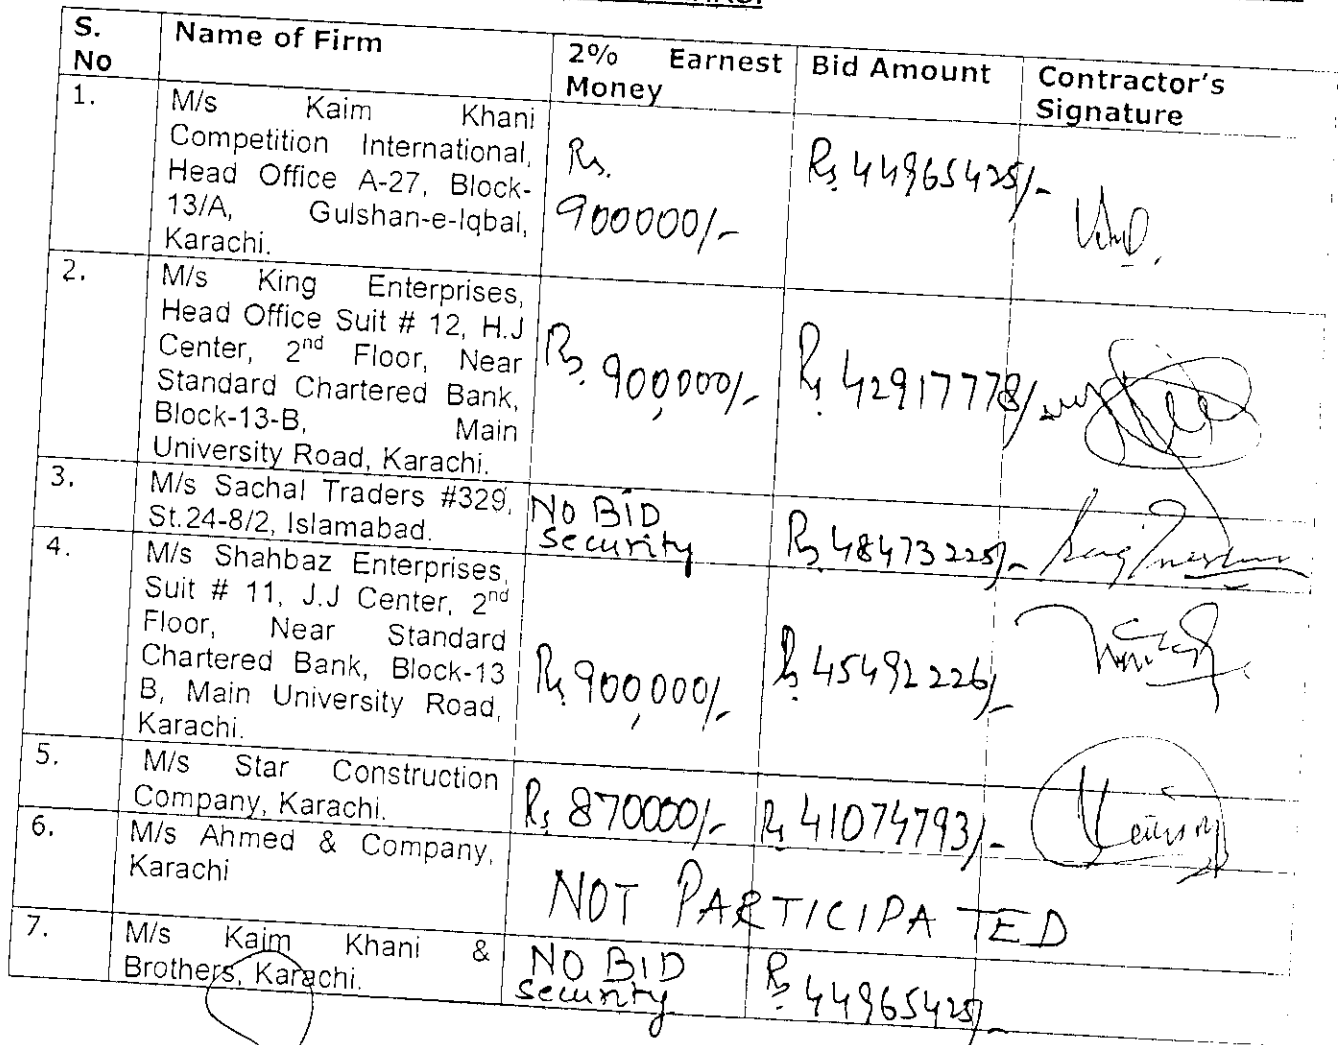 S. No | Name of Firm | 2% Earnest Money | Bid Amount | Contractor's Signature
1. | M/s Kaim Khani
Competition International,
Head Office A-27, Block-
13/A, Gulshan-e-Iqbal,
Karachi. | Rs. 900000/- | Rs 44965425/-
2. | M/s King Enterprises,
Head Office Suit # 12, H.J
Center, 2nd Floor, Near
Standard Chartered Bank,
Block-13-B, Main
University Road, Karachi. | Rs. 900,000/- | Rs 42917778/-
3. | M/s Sachal Traders #329,
St.24-8/2, Islamabad. | NO BID security | Rs 48473225/-
4. | M/s Shahbaz Enterprises,
Suit # 11, J.J Center, 2nd
Floor, Near Standard
Chartered Bank, Block-13
B, Main University Road,
Karachi. | Rs 900,000/- | Rs 45492226/-
5. | M/s Star Construction
Company, Karachi. | Rs 870000/- | Rs 41074793/-
6. | M/s Ahmed & Company,
Karachi | NOT PARTICIPATED
7. | M/s Kaim Khani &
Brothers, Karachi. | NO BID security | Rs 44965425/-